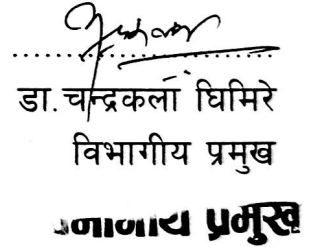 डा. चन्द्रकला घिमिरे
विभागीय प्रमुख
प्रमुख